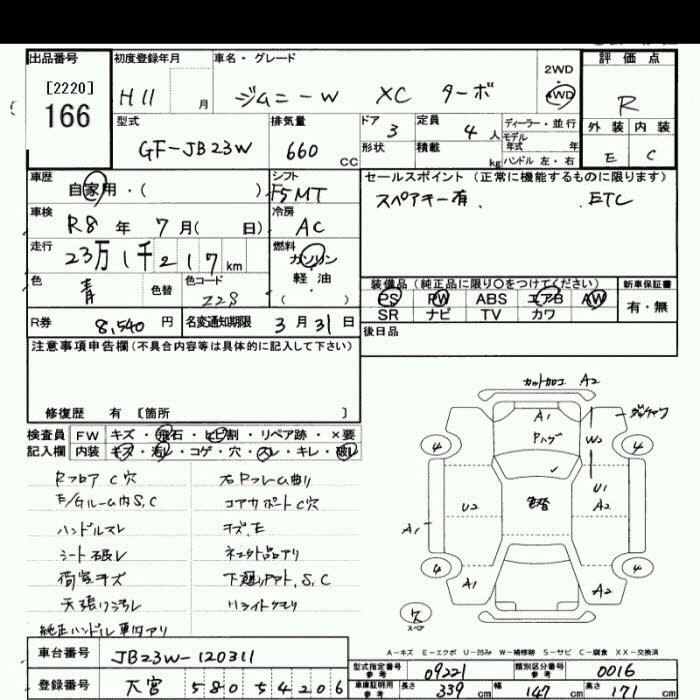 出品番号 初度登録年月 車名・グレード 2WD 評価点
[2220]
166
H11 月 ジムニーW XC ターボ 4WD R
型式 排気量 ドア 定員 ディーラー・並行 外装 内装
GF-JB23W 660 CC 3 4 人 モデル 年式 年 E C
形状 積載 kg ハンドル 左・右
車歴 自家用・( ) シフト F5MT セールスポイント(正常に機能するものに限ります)
スペアキー有、 ETC
車検 R8 年 7 月( 日) 冷房 AC
走行 23万1千217 km 燃料 ガソリン
軽・油
( )
色 青 色替 色コード Z2S
装備品(純正品に限り○をつけてください) 新車保証書
PS PW ABS エアB AW 有・無
SR ナビ TV カワ
R券 8,540 円 名変通知期限 3 月 31 日 後日品
注意事項申告欄(不具合内容等は具体的に記入して下さい)
修復歴 有 [箇所 ]
検査員 FW キズ・飛石・ヒビ割・リペア跡・×要
記入欄 内装 キズ・汚レ・コゲ・穴・スレ・キレ・破レ
Rフロア C穴 右Rフレーム曲り
F/Gルーム内 S,C コアサポートC穴
ハンドルスレ キズ,E
シート破レ ネコ外品アリ
荷室キズ 下廻り S,C
天張り汚レ Hライトクモリ
純正ハンドル車内アリ
カットカロコ A2
A1
Pハゲ W3
4 4
U1
A2
U2 A1
4 4
A1 A2
7
スペア
A-キズ E-エクボ U-凹み W-補修跡 S-サビ C-腐食 XX-交換済
車台番号 JB23W-120311
登録番号 大宮 580 5 4206
型式指定番号 参考 09221 類別区分番号 参考 0016
車庫証明用 参考 長さ 339 cm 幅 147 cm 高さ 171 cm